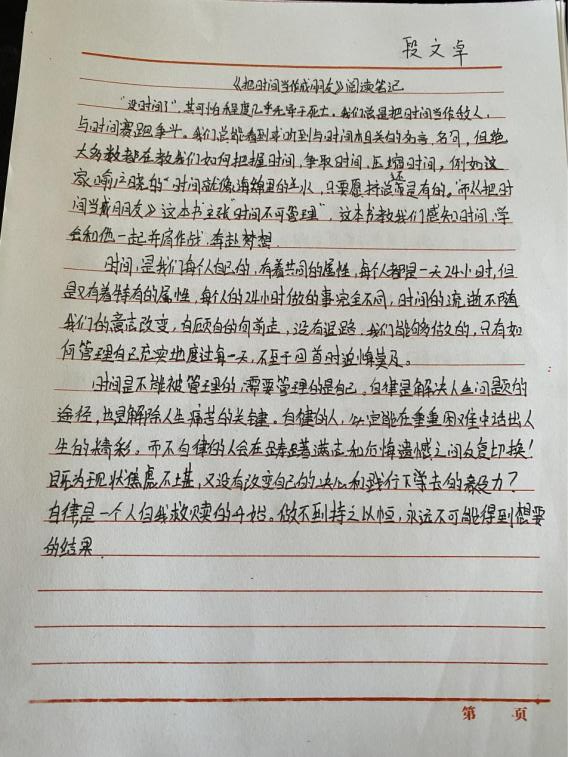 段文卓
《把时间当作成朋友》阅读笔记
“没时间了”,其可怕程度几乎无异于死亡。我们总是把时间当作敌人,
与时间赛跑争斗。我们总能看到或听到与时间相关的名言、名句,但绝
大多数都在教我们如何把握时间、争取时间、压缩时间,例如这
家喻户晓的“时间就像海绵里的水,只要愿挤总还是有的。”而《把时
间当成朋友》这本书主张“时间不可管理”,这本书教我们感知时间,学
会和他一起并肩作战,奔赴梦想.
时间,是我们每个人自己的,有着共同的属性,每个人都是一天24小时,但
是又有着特有的属性,每个人的24小时做的事完全不同,时间的流逝不随
我们的意志改变,自顾自的向前走,没有退路,我们能够做的,只有如
何管理自己充实地度过每一天,不至于回首时追悔莫及。
时间是不能被管理的,需要管理的是自己。自律是解决人生问题的
途径,也是解除人生痛苦的关键。自律的人,必定能在重重困难中活出人
生的精彩。而不自律的人会在踌躇满志和后悔遗憾之间反复切换!
既为现状焦虑不堪,又没有改变自己的决心和践行下去的毅力?
自律,是一个人自我救赎的开始。做不到持之以恒,永远不可能得到想要
的结果.
第 页